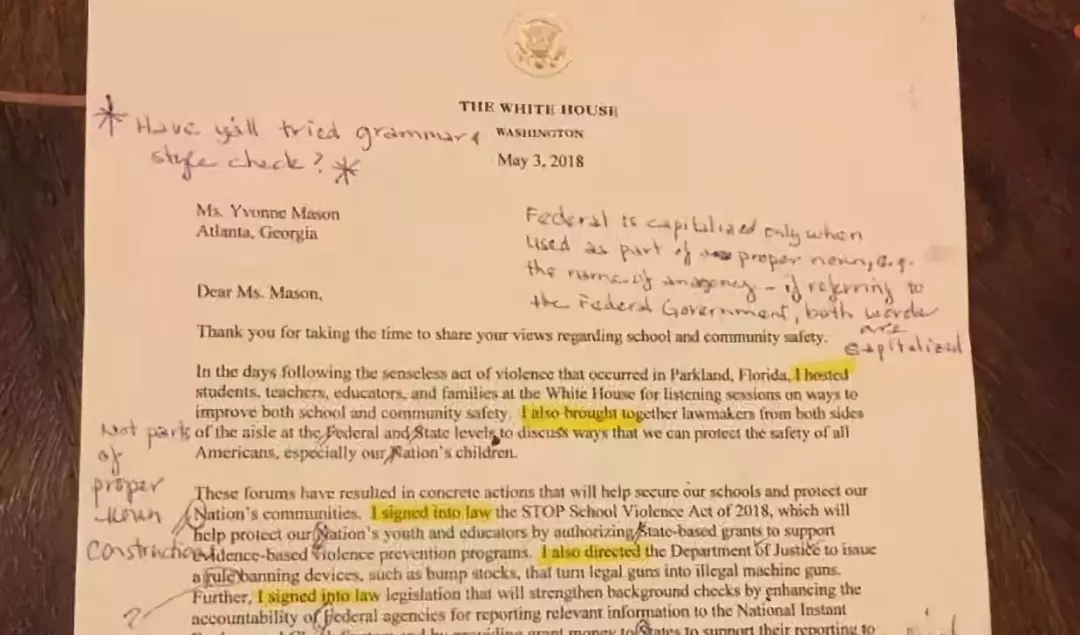 THE WHITE HOUSE
WASHINGTON
May 3, 2018
* Have y'all tried grammar &
style check? *
Ms. Yvonne Mason
Atlanta, Georgia
Federal is capitalized only when
used as part of proper noun, e.g.
the name of an agency - if referring to
the Federal Government, both words
are
capitalized
Dear Ms. Mason,
Thank you for taking the time to share your views regarding school and community safety.
In the days following the senseless act of violence that occurred in Parkland, Florida, I hosted
students, teachers, educators, and families at the White House for listening sessions on ways to
improve both school and community safety. I also brought together lawmakers from both sides
of the aisle at the Federal and State levels to discuss ways that we can protect the safety of all
Americans, especially our Nation's children.
Not part
of
proper
noun
construction
These forums have resulted in concrete actions that will help secure our schools and protect our
Nation's communities. I signed into law the STOP School Violence Act of 2018, which will
help protect our Nation's youth and educators by authorizing State-based grants to support
evidence-based violence prevention programs. I also directed the Department of Justice to issue
a rule banning devices, such as bump stocks, that turn legal guns into illegal machine guns.
Further, I signed into law legislation that will strengthen background checks by enhancing the
accountability of Federal agencies for reporting relevant information to the National Instant
?
and by providing grant money to States to support their reporting to